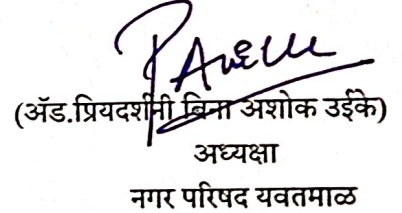 (ॲड.प्रियदर्शनी बिना अशोक उईके)
अध्यक्षा
नगर परिषद यवतमाळ